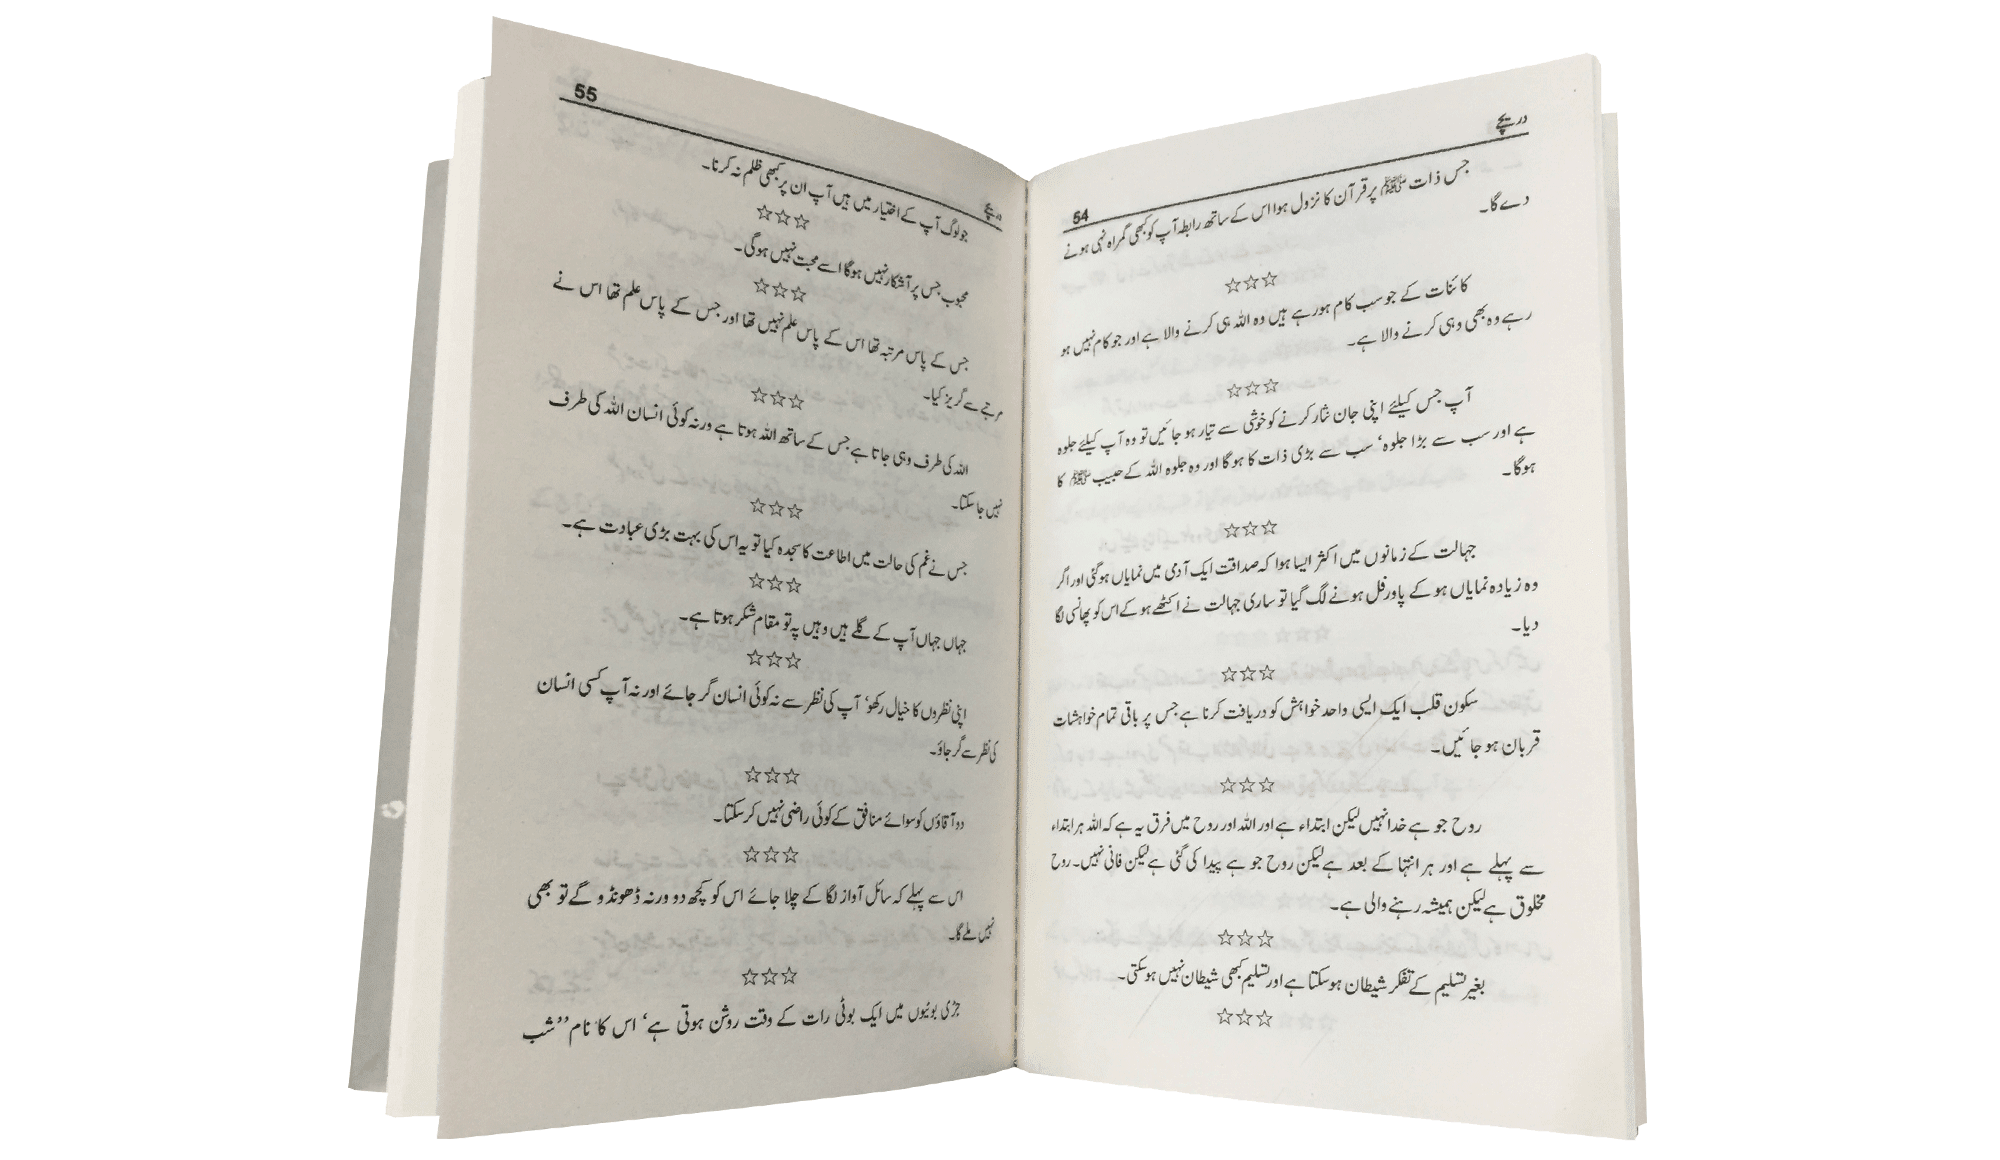 دریچے
54
جس ذات ﷺ پر قرآن کا نزول ہوا اس کے ساتھ رابطہ آپ کو کبھی گمراہ نہیں ہونے
دے گا۔
☆☆☆
کائنات کے جو سب کام ہو رہے ہیں وہ اللہ ہی کرنے والا ہے اور جو کام نہیں ہو
رہے وہ بھی وہی کرنے والا ہے۔
☆☆☆
آپ جس کیلئے اپنی جان نثار کرنے کو خوشی سے تیار ہو جائیں تو وہ آپ کیلئے جلوہ
ہے اور سب سے بڑا جلوہ‘ سب سے بڑی ذات کا ہوگا اور وہ جلوہ اللہ کے حبیب ﷺ کا
ہوگا۔
☆☆☆
جہالت کے زمانوں میں اکثر ایسا ہوا کہ صداقت ایک آدمی میں نمایاں ہوگئی اور اگر
وہ زیادہ نمایاں ہو کے پاورفل ہونے لگ گیا تو ساری جہالت نے اکٹھے ہو کے اس کو پھانسی لگا
دیا۔
☆☆☆
سکون قلب ایک ایسی واحد خواہش کو دریافت کرنا ہے جس پر باقی تمام خواہشات
قربان ہو جائیں۔
☆☆☆
روح جو ہے خدا نہیں لیکن ابتداء ہے اور اللہ اور روح میں فرق یہ ہے کہ اللہ ہر ابتداء
سے پہلے ہے اور ہر انتہا کے بعد ہے لیکن روح جو ہے پیدا کی گئی ہے لیکن فانی نہیں۔ روح
مخلوق ہے لیکن ہمیشہ رہنے والی ہے۔
☆☆☆
بغیر تسلیم کے تفکر شیطان ہو سکتا ہے اور تسلیم کبھی شیطان نہیں ہو سکتی۔
☆☆☆
دریچے
55
جو لوگ آپ کے اختیار میں ہیں آپ ان پر کبھی ظلم نہ کرنا۔
☆☆☆
محبوب جس پر آشکار نہیں ہوگا اسے محبت نہیں ہوگی۔
☆☆☆
جس کے پاس مرتبہ تھا اس کے پاس علم نہیں تھا اور جس کے پاس علم تھا اس نے
مرتبے سے گریز کیا۔
☆☆☆
اللہ کی طرف وہی جاتا ہے جس کے ساتھ اللہ ہوتا ہے ورنہ کوئی انسان اللہ کی طرف
نہیں جا سکتا۔
☆☆☆
جس نے غم کی حالت میں اطاعت کا سجدہ کیا تو یہ اس کی بہت بڑی عبادت ہے۔
☆☆☆
جہاں جہاں آپ کے گلے ہیں وہیں پہ تو مقام شکر ہوتا ہے۔
☆☆☆
اپنی نظروں کا خیال رکھو‘ آپ کی نظر سے نہ کوئی انسان گر جائے اور نہ آپ کسی انسان
کی نظر سے گر جاؤ۔
☆☆☆
دو آقاؤں کو سوائے منافق کے کوئی راضی نہیں کر سکتا۔
☆☆☆
اس سے پہلے کہ سائل آواز لگا کے چلا جائے اس کو کچھ دو ورنہ ڈھونڈو گے تو بھی
نہیں ملے گا۔
☆☆☆
جڑی بوٹیوں میں ایک بوٹی رات کے وقت روشن ہوتی ہے‘ اس کا نام ’’شب